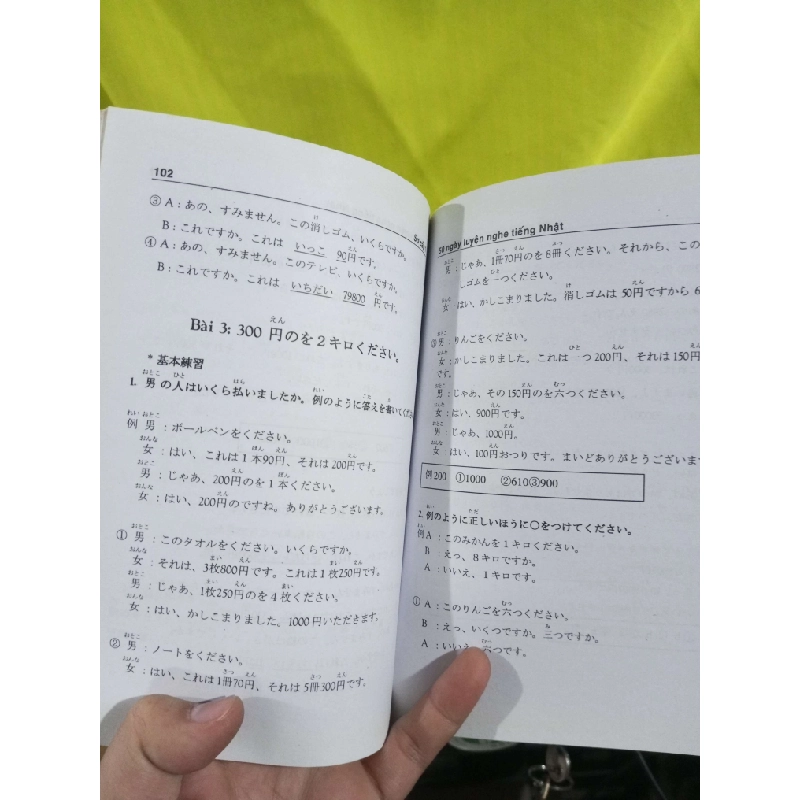 102
③ A : あの、すみません。この消しゴム、いくらですか。
B : これですか。これは いっこ 90円です。
④ A : あの、すみません。このテレビ、いくらですか。
B : これですか。これは いちだい 79800 円です。
Bài 3: 300 円のを2キロください。
* 基本練習
1. 男の人はいくら払いましたか。例のように答えを書いてくださ
例 男 : ボールペンをください。
女 : はい、これは1本90円、それは200円です。
男 : じゃあ、200円のを1本ください。
女 : はい、200円のですね。ありがとうございます。
① 男 : このタオルをください。いくらですか。
女 : それは、3枚800円です。これは1枚250円です。
男 : じゃあ、1枚250円のを4枚ください。
女 : はい、かしこまりました。1000円いただきます。
② 男 : ノートをください。
女 : はい、これは1冊70円、それは5冊300円です。
50 ngày luyện nghe tiếng Nhật
男 : じゃあ、1冊70円のを8冊ください。それから、この
しゴムを一つください。
女 : はい、かしこまりました。消しゴムは50円ですから 6
③ 男 : りんごをください。
女 : かしこまりました。これは 一つ200円、それは150円
です。
男 : じゃあ、その150円のを六つください。
女 : はい、900円です。
男 : じゃあ、1000円。
女 はい、100円おつりです。まいどありがとうございます
例200 ①1000 ②610③900
2. 例のように正しいほうに○をつけてください。
例A : このみかんを1キロください。
B : えっ、8キロですか。
A : いいえ、1キロです。
① A : このりんごを六つください。
B : えっ、いくつですか。三つですか。
A : いいえ、六つです。